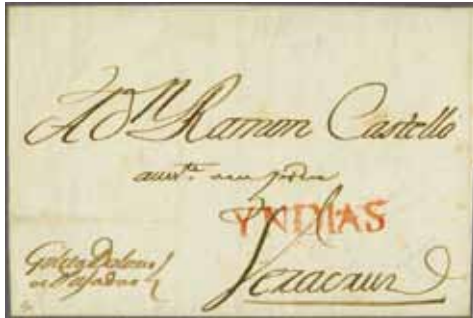 A Dⁿ Ramon Castello
aunte. a su podre
YNDIAS
Veracruz
Goleta Dolores